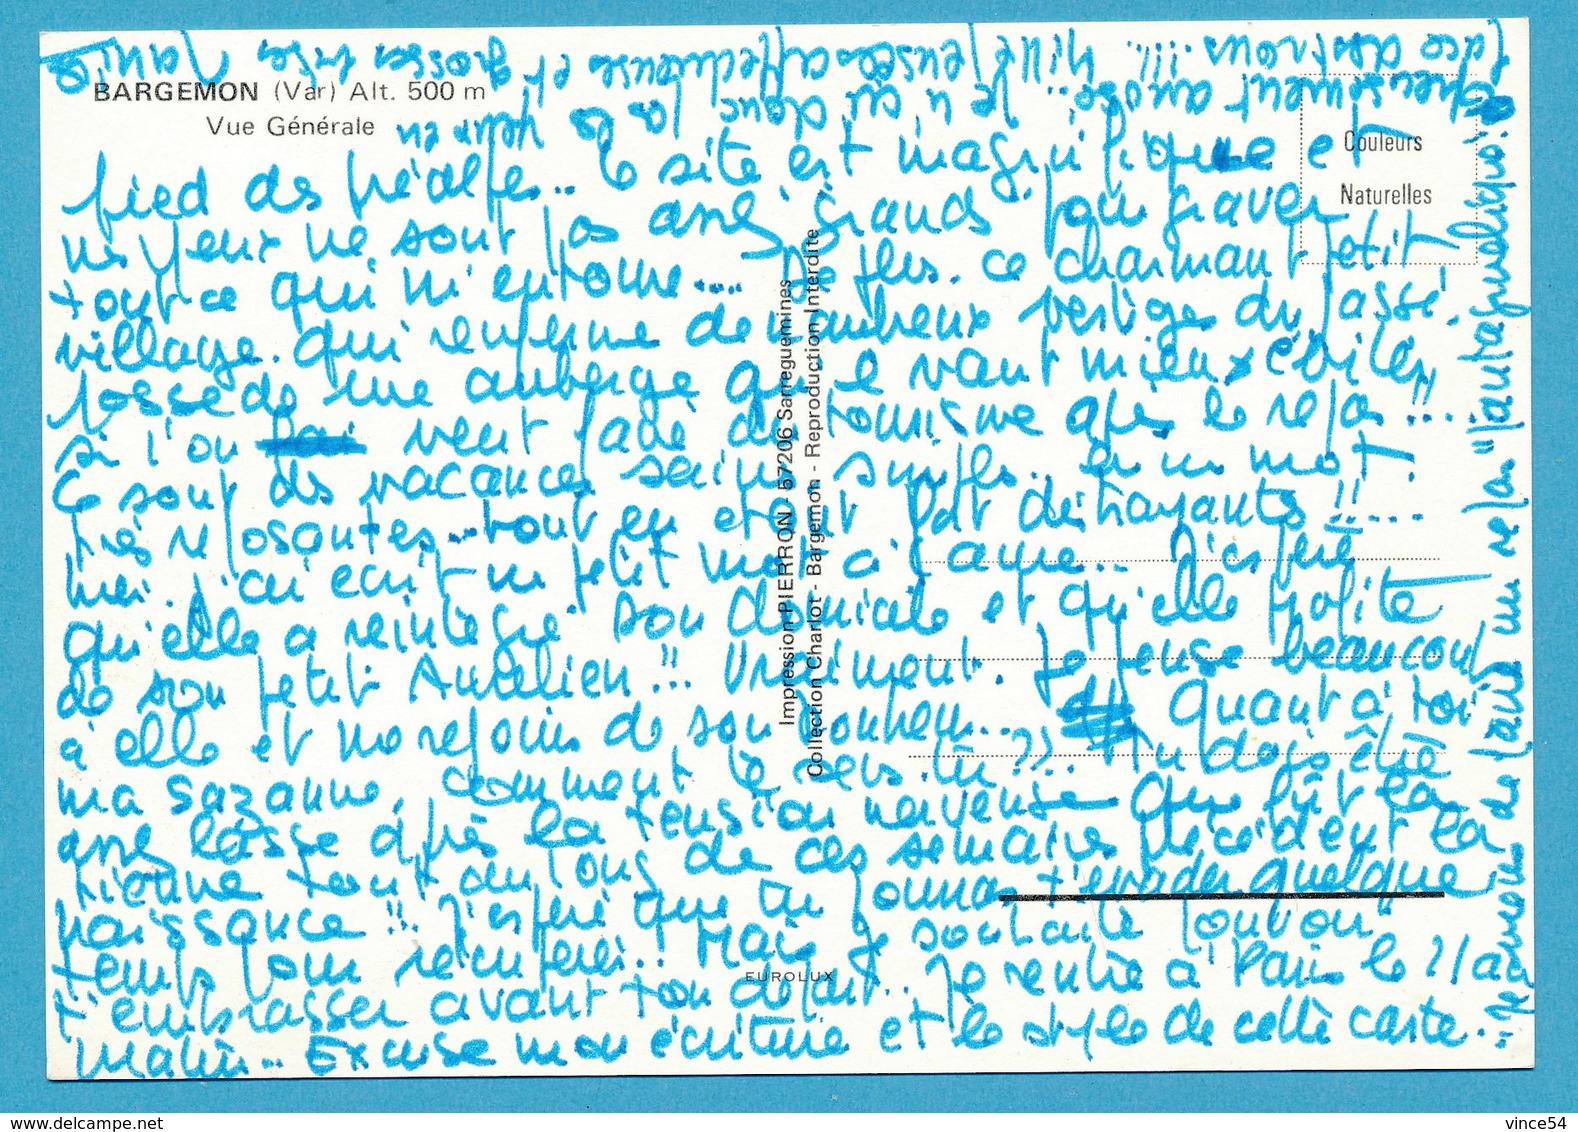 BARGEMON (Var) Alt. 500 m
Vue Générale
Couleurs
Naturelles
pied des préalpes... Ce site est magnifique et
mes yeux ne sont pas assez grands pour graver
tout ce qui m'entoure.... De plus. ce charmant petit
village. qui renferme de nombreux vestiges du passé,
possède une auberge qu'il vaut mieux éviter
si l'on veut faire du tourisme après le repas!!...
Ce sont des vacances saines simples. en un mot.
très reposantes... tout en étant
hier. j'ai écrit un petit mot à J'espère
qu'elle a réintégré son domicile et qu'elle profite
de son petit Aurélien!!! Vraiment. Je pense beaucoup
à elle et me réjouis de son bonheur... Quant à toi
ma Suzanne, comment te sens-tu??. Tu dois être
assez lasse après la tension nerveuse que fût la
tienne tout au long de ces semaines précédent la
naissance!!. J'espère que tu pourras t'évader quelque
temps pour récupérer.. Mais je souhaite pouvoir
t'embrasser avant ton départ.. Je rentre à Paris le 21 au
matin... Excuse mon écriture et le style de cette carte...
Je viens de faire un repas "pantagruélique"
Impression PIERRON - 57206 Sarreguemines
Collection Charlot - Bargemon - Reproduction Interdite
EUROLUX
vince54